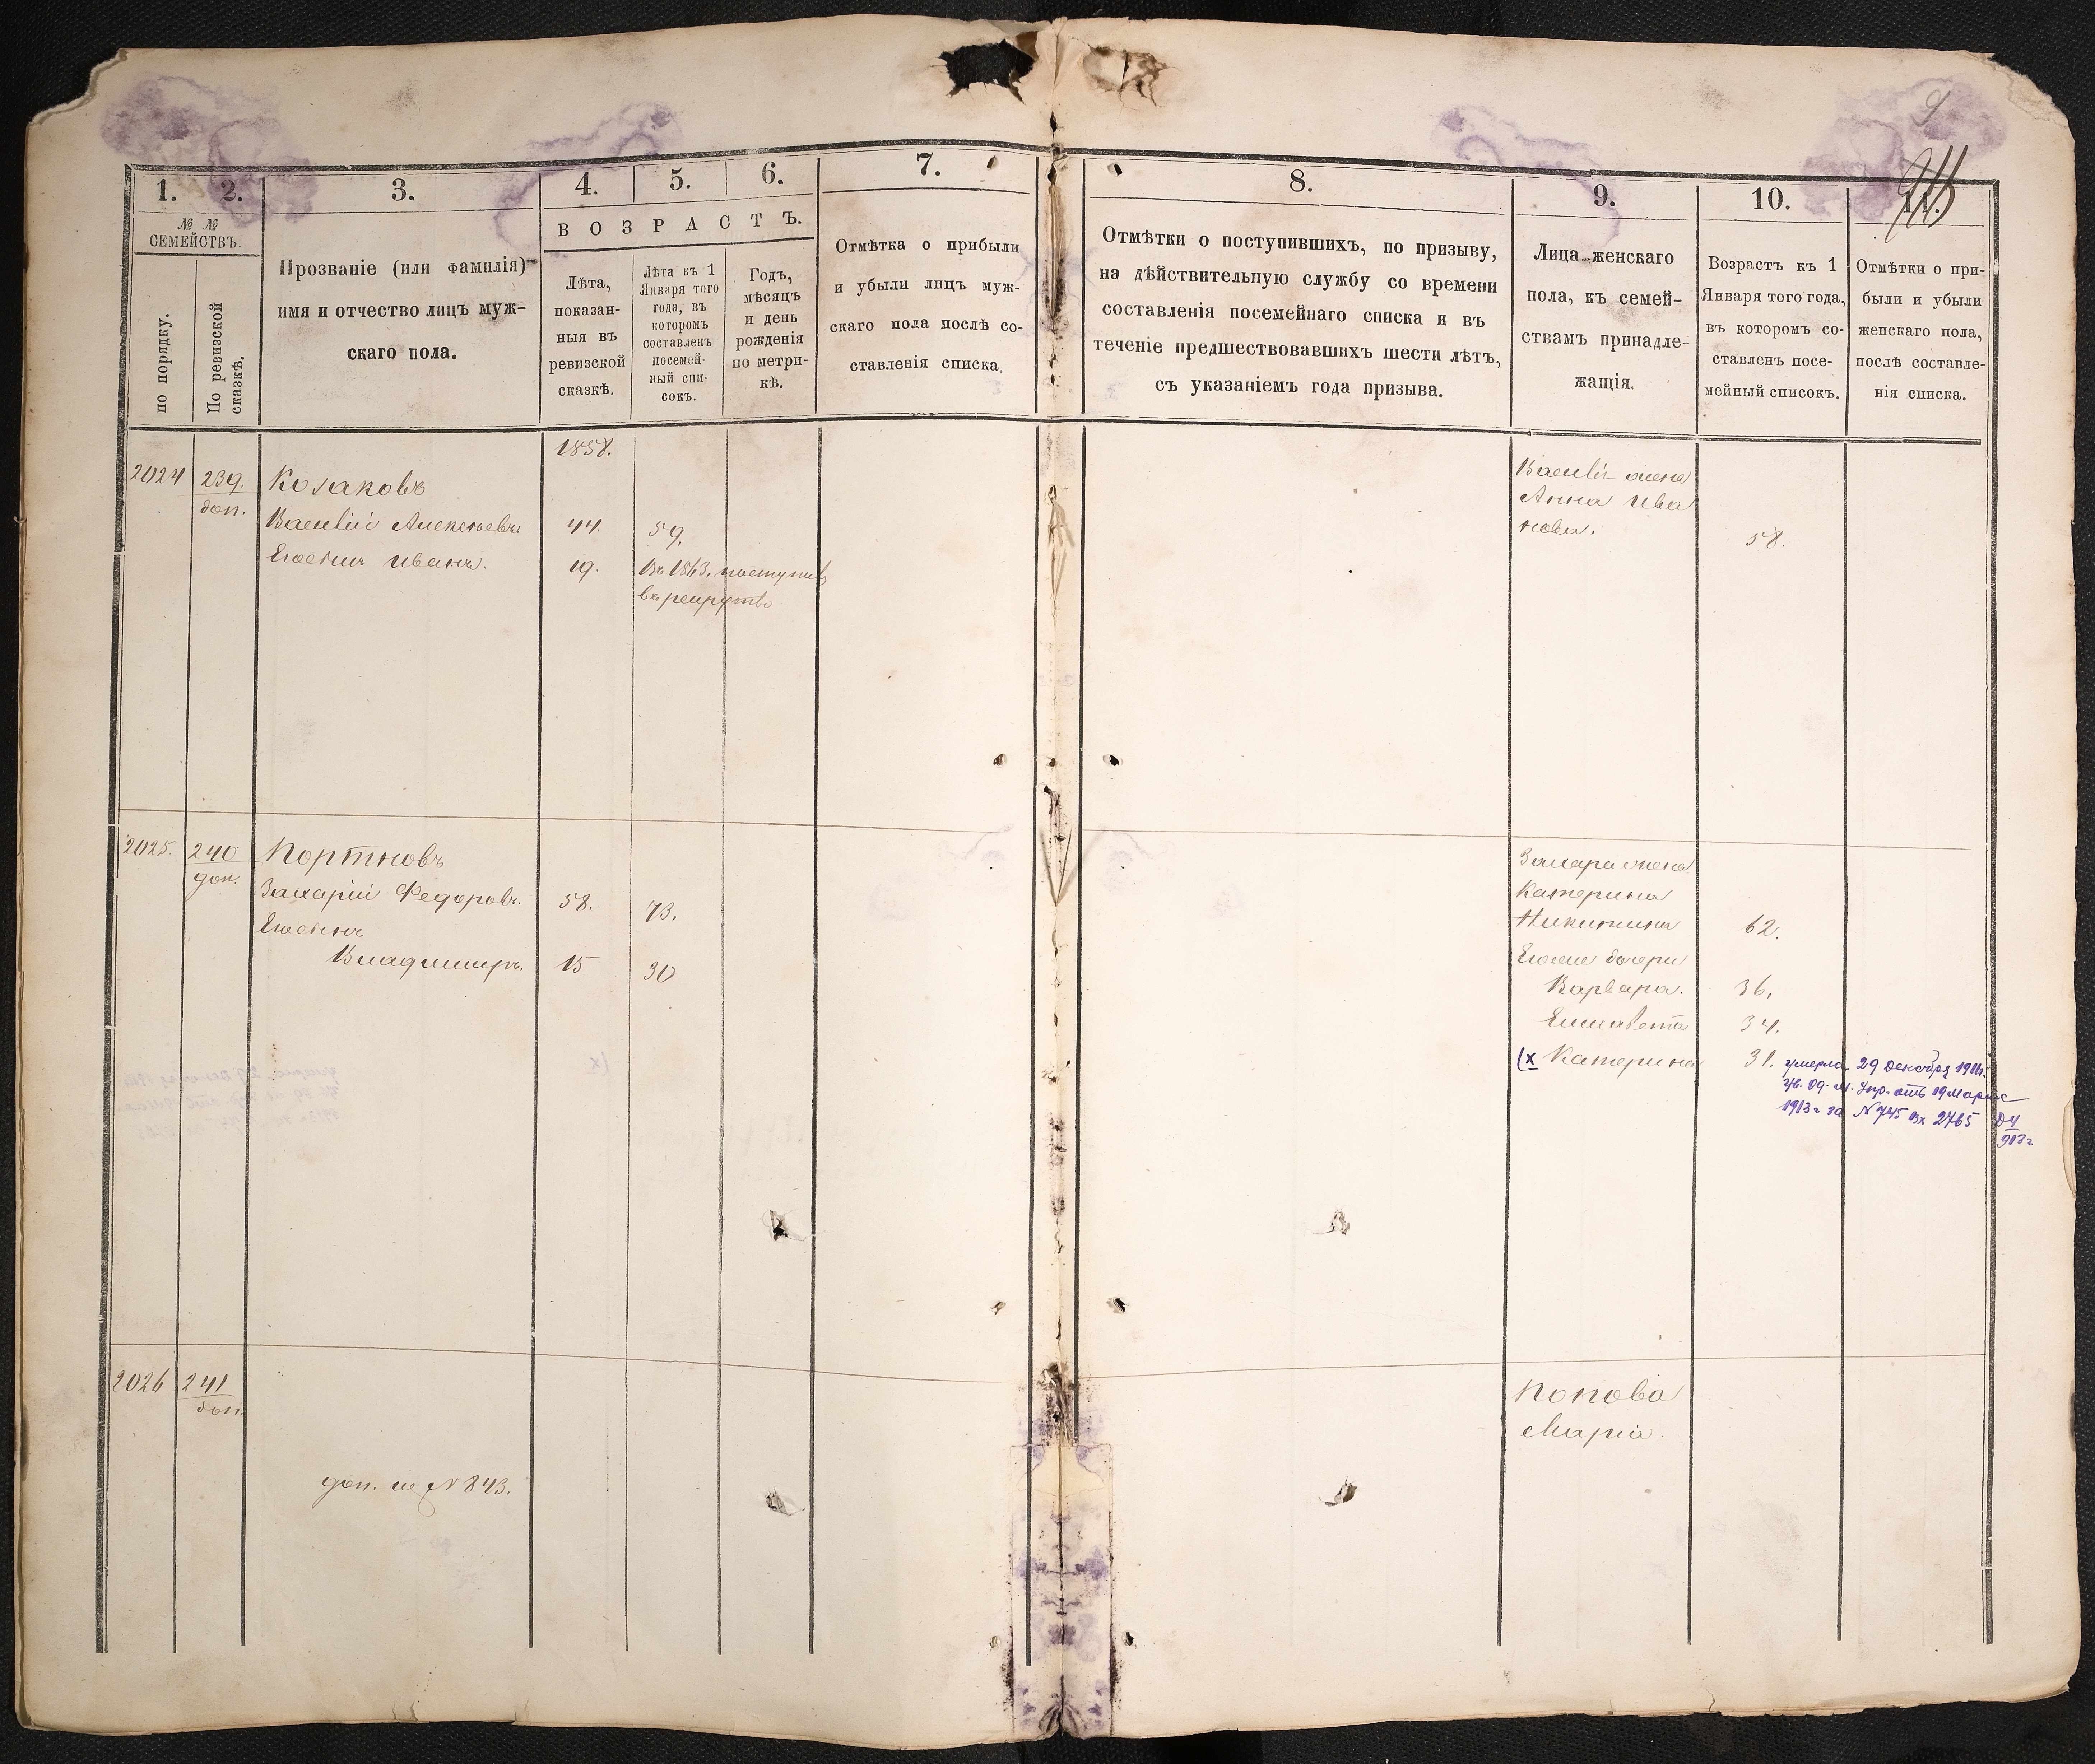 9
1. 2. 3. 4. 5. 6. 7. 8. 9. 10. 11.
№ № СЕМЕЙСТВЪ.
по порядку.
По ревизской сказкѣ.
Прозваніе (или фамилія)
имя и отчество лицъ муж-
скаго пола.
ВОЗРАСТЪ.
Лѣта,
показан-
ныя въ
ревизской
сказкѣ.
Лѣта къ 1
Января того
года, въ
которомъ
составленъ
посемей-
ный спи-
сокъ.
Годъ,
мѣсяцъ
и день
рожденія
по метри-
кѣ.
Отмѣтка о прибыли
и убыли лицъ муж-
скаго пола послѣ со-
ставленія списка.
Отмѣтки о поступившихъ, по призыву,
на дѣйствительную службу со времени
составленія посемейнаго списка и въ
теченіе предшествовавшихъ шести лѣтъ,
съ указаніемъ года призыва.
Лица женскаго
пола, къ семей-
ствамъ принадле-
жащія.
Возрастъ къ 1
Января того года,
въ которомъ со-
ставленъ посе-
мейный списокъ.
Отмѣтки о при-
были и убыли
женскаго пола,
послѣ составле-
нія списка.
1858.
2024 239. доп. Козаковъ
Василій Алексѣевъ 44. 59.
Егосынъ Иванъ. 19. Въ 1863. поступилъ
въ рекруты
Василія жена
Анна Ива
нова. 58.
2025. 240 доп. Портновъ
Захарій Федоровъ. 58. 73.
Егосынъ
Владимиръ. 15 30
Захара жена
Катерина
Никитина 62.
Егоже дочери
Варвара. 36.
Елизавета 34.
(х Катерина 31. умерла 29 Декабря 1911г.
Ув. Од. М. Упр. отъ 19 Марта
1913 г за № 745 Вх 2765 Д4
913 г
2026 241 доп.
доп. къ № 843.
Попова
Марія.